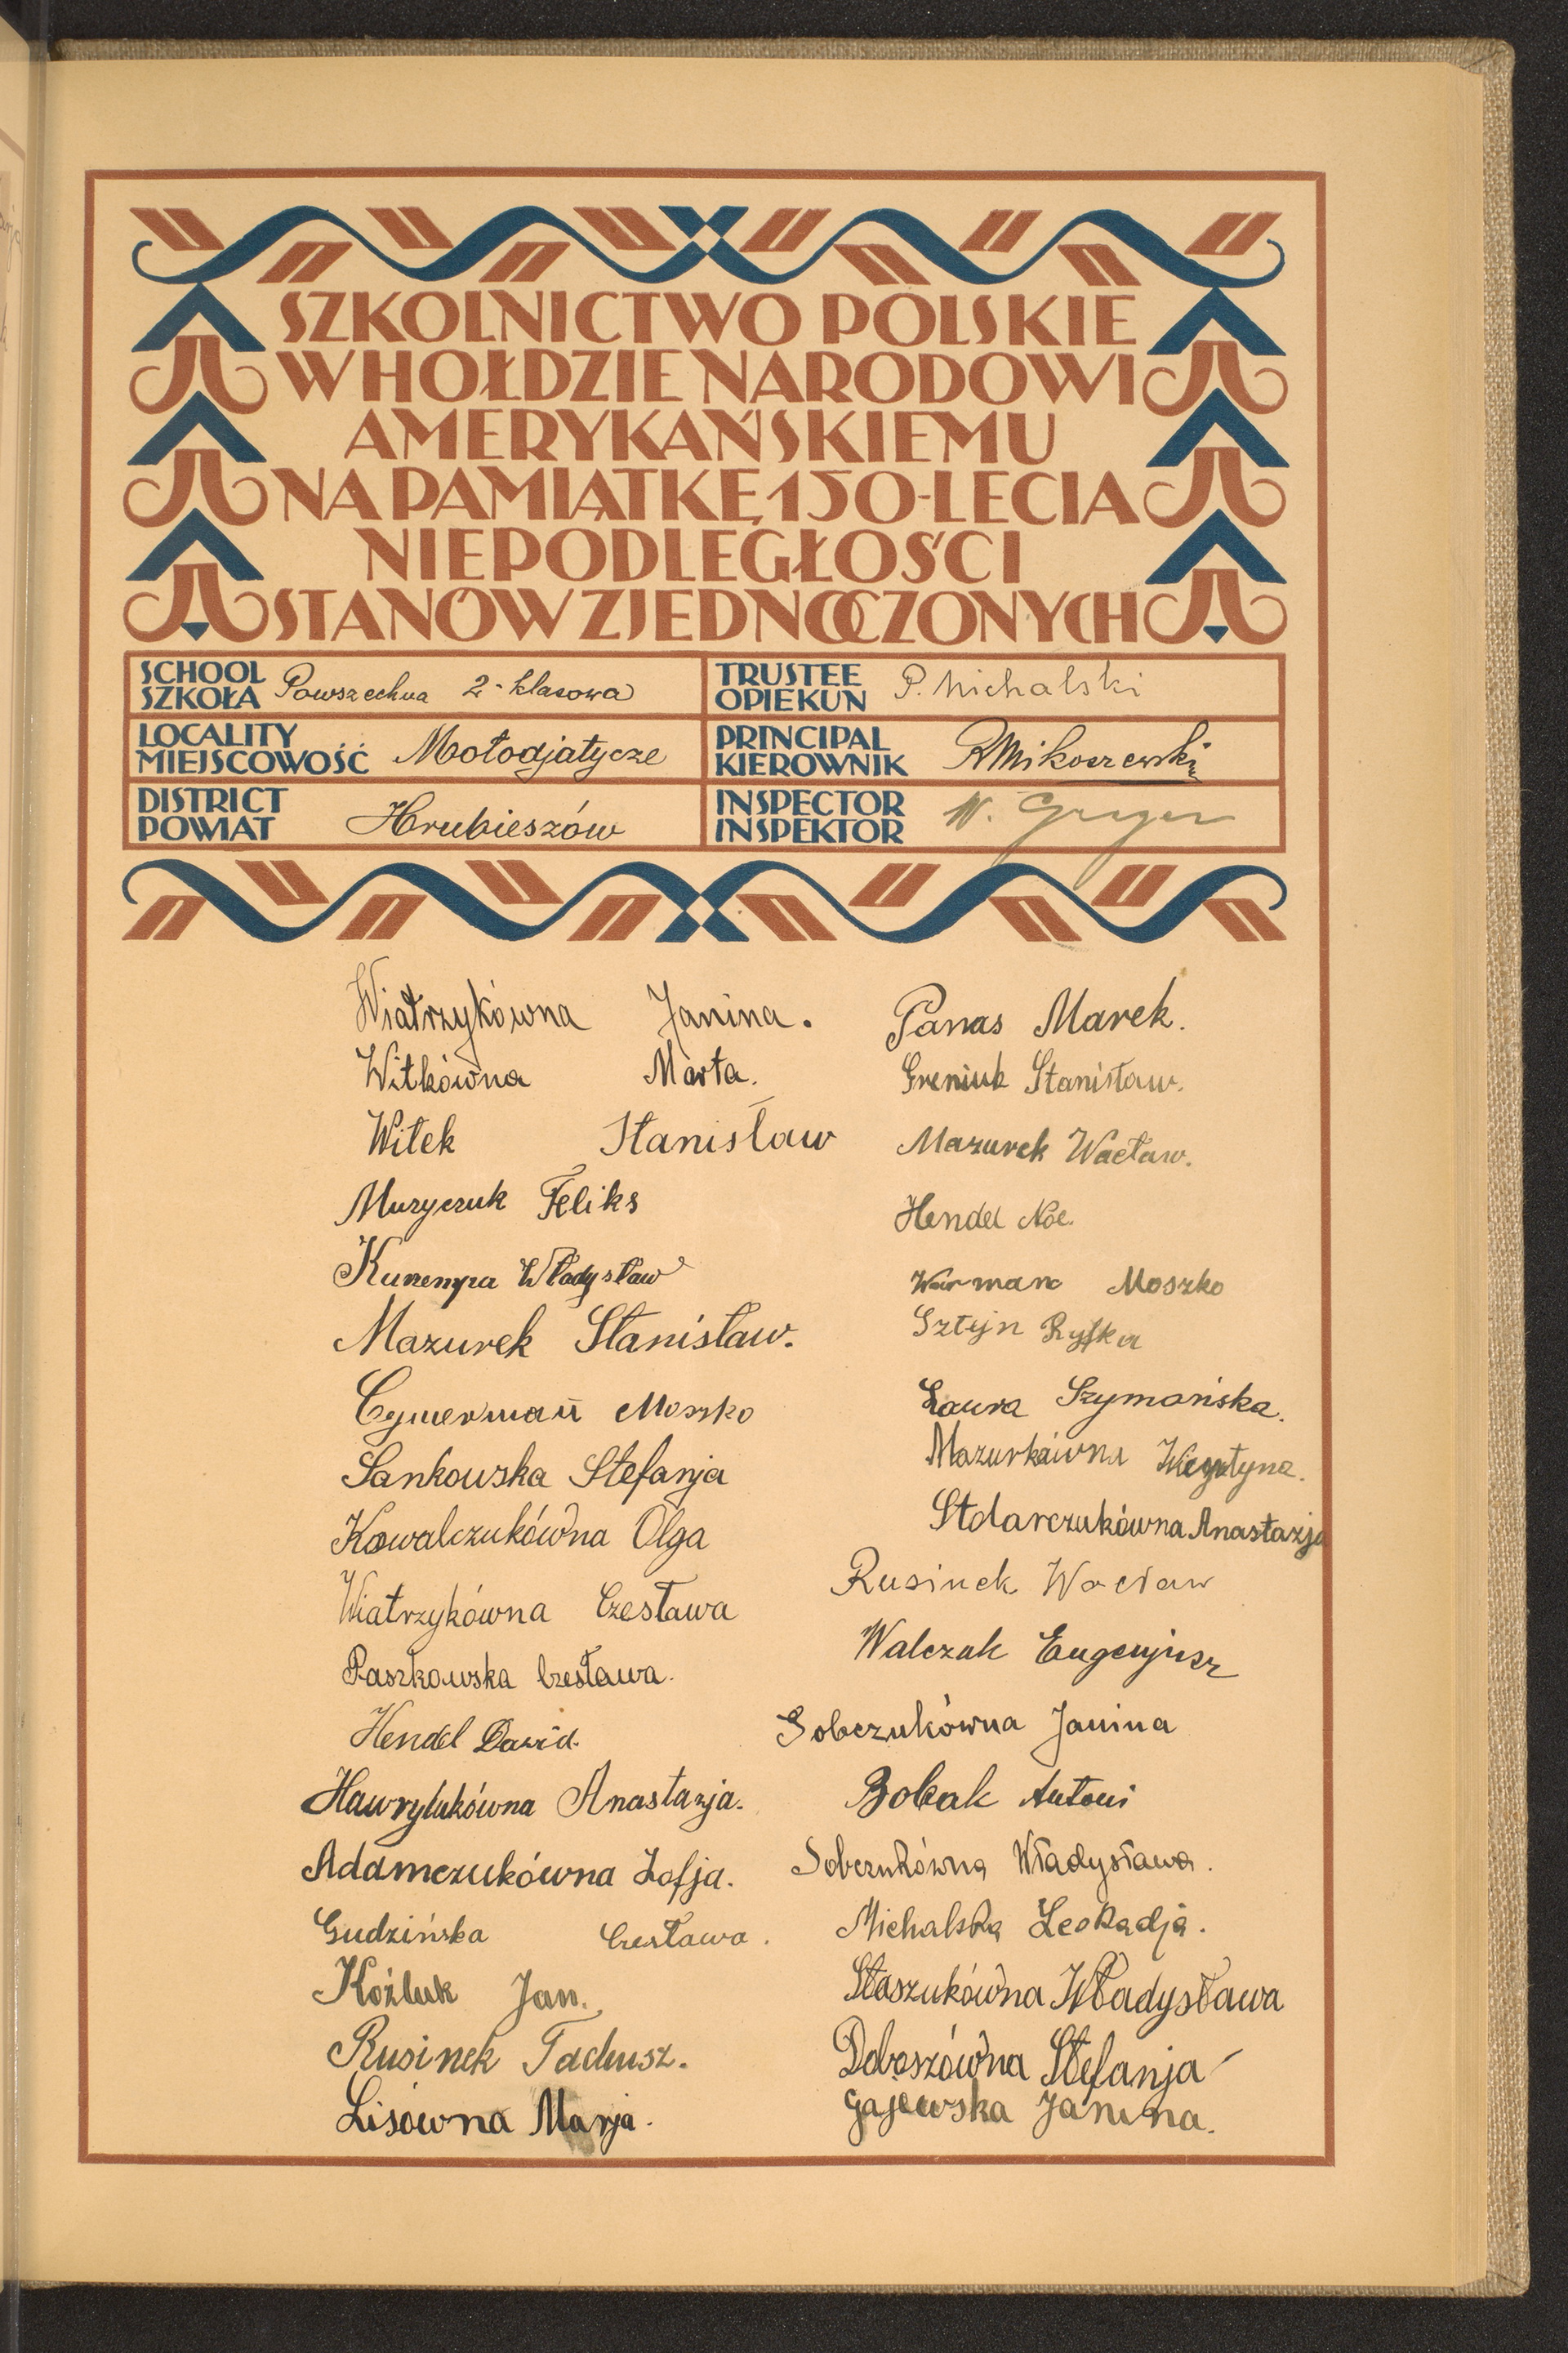 SZKOLNICTWO POLSKIE
W HOŁDZIE NARODOWI
AMERYKAŃSKIEMU
NA PAMIĄTKĘ 150-LECIA
NIEPODLEGŁOŚCI
STANÓW ZJEDNOCZONYCH
SCHOOL
SZKOŁA Powszechna 2-klasowa
TRUSTEE
OPIEKUN P. Michalski
LOCALITY
MIEJSCOWOŚĆ Mołodjatycze
PRINCIPAL
KIEROWNIK R Mikoszewski
DISTRICT
POWIAT Hrubieszów
INSPECTOR
INSPEKTOR W.
Wiatrzykówna Janina.
Witkówna Marta.
Witek Stanisław
Muzyczuk Feliks
Władysław
Mazurek Stanisław.
Cymermań Moszko
Sankowska Stefanja
Kowalczukówna Olga
Wiatrzykówna Czesława
Paszkowska Czesława.
Hendel Dawid.
Hawrylukówna Anastazja.
Adamczukówna Zofja.
Gudzińska Czesława.
Koźluk Jan.
Rusinek Tadeusz.
Lisówna Marja.
Panas Marek.
Greniuk Stanisław.
Mazurek Wacław.
Hendel Noe.
Warman Moszko
Sztejn Ryfka
Laura Szymańska.
Mazurkówna Krystyna.
Stolarczukówna Anastazja
Rusinek Wacław
Walczak Eugenjusz
Sobczukówna Janina
Bobak Antoni
Sobczukówna Władysława.
Michalska Leokadja.
Staszukówna Władysława
Doboszówna Stefanja
Gajewska Janina.